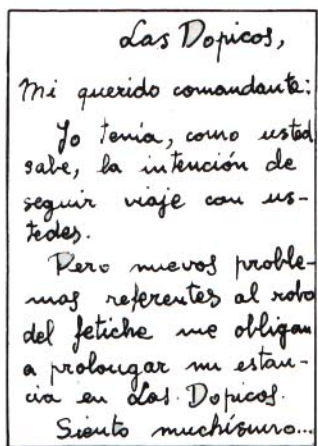 Las Dopicos,
Mi querido comandante:
Yo tenía, como usted
sabe, la intención de
seguir viaje con us-
tedes.
Pero nuevos proble-
mas referentes al robo
del fetiche me obligan
a prolongar mi estan-
cia en Las Dopicos.
Siento muchísimo...